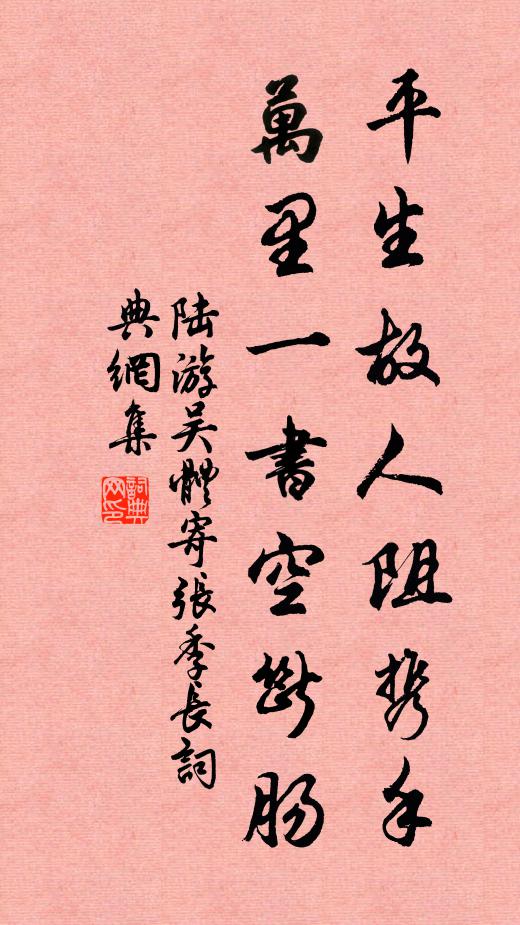 平生故人阻携手
萬里一書空斷腸
陸游吴體寄張季長詞
典網集
詞典
网印